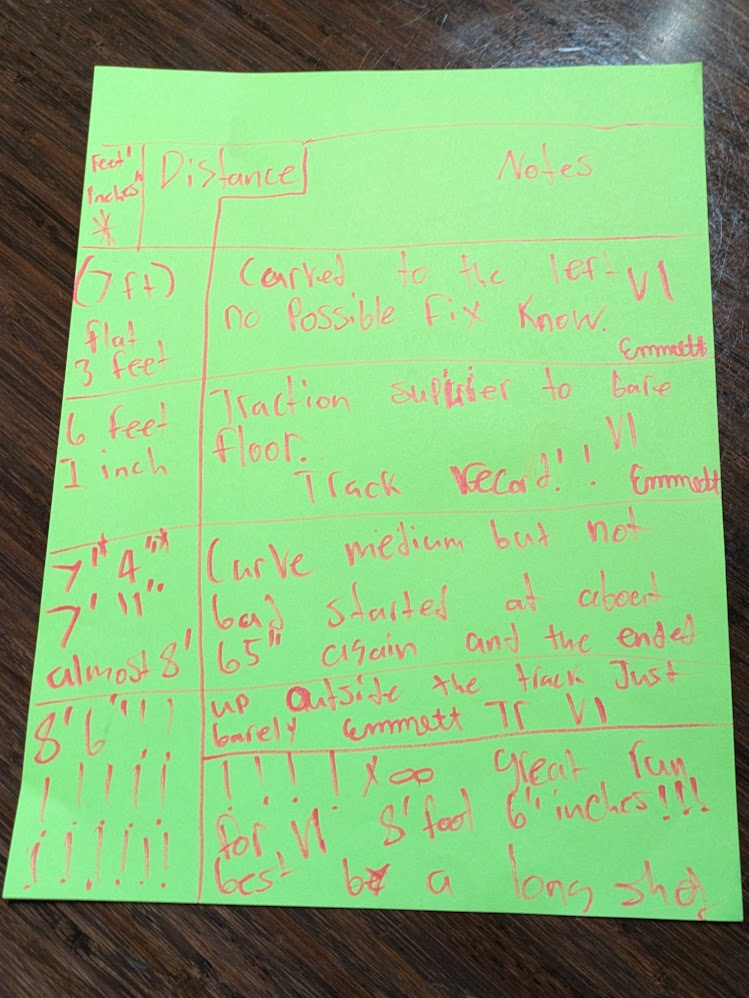 Feet'
Inches"
*
Distance
Notes
(7ft)
flat
3 feet
Curved to the left V1
no Possible Fix Know.
Emmett
6 feet
1 inch
Traction supirier to bare
floor. V1
Track record!! Emmett
7'* 4"*
7' 11"
almost 8'
Curve medium but not
bad started at about
65" again and the ended
up Outside the track Just
barely Emmett Tr V1
8'6"!!
!!!!!
!!!!!!
!!!! x∞ great run
for V1 8'foot 6" inches!!!
best by a long shot